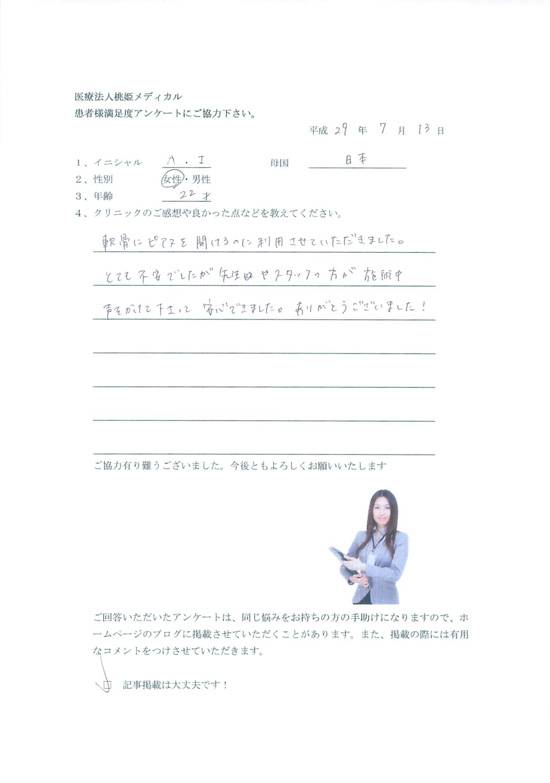 医療法人桃姫メディカル
患者様満足度アンケートにご協力下さい。
平成 29 年 7 月 13 日
1、イニシャル A . I 母国 日本
2、性別 女性・男性
3、年齢 22才
4、クリニックのご感想や良かった点などを教えてください。
軟骨にピアスを開けるのに利用させていただきました。
とても不安でしたが先生やスタッフの方が施術中
声をかけて下さって安心できました。ありがとうございました!
ご協力有り難うございました。今後ともよろしくお願いいたします
ご回答いただいたアンケートは、同じ悩みをお持ちの方の手助けになりますので、ホ
ームページのブログに掲載させていただくことがあります。また、掲載の際には有用
なコメントをつけさせていただきます。
□ 記事掲載は大丈夫です!